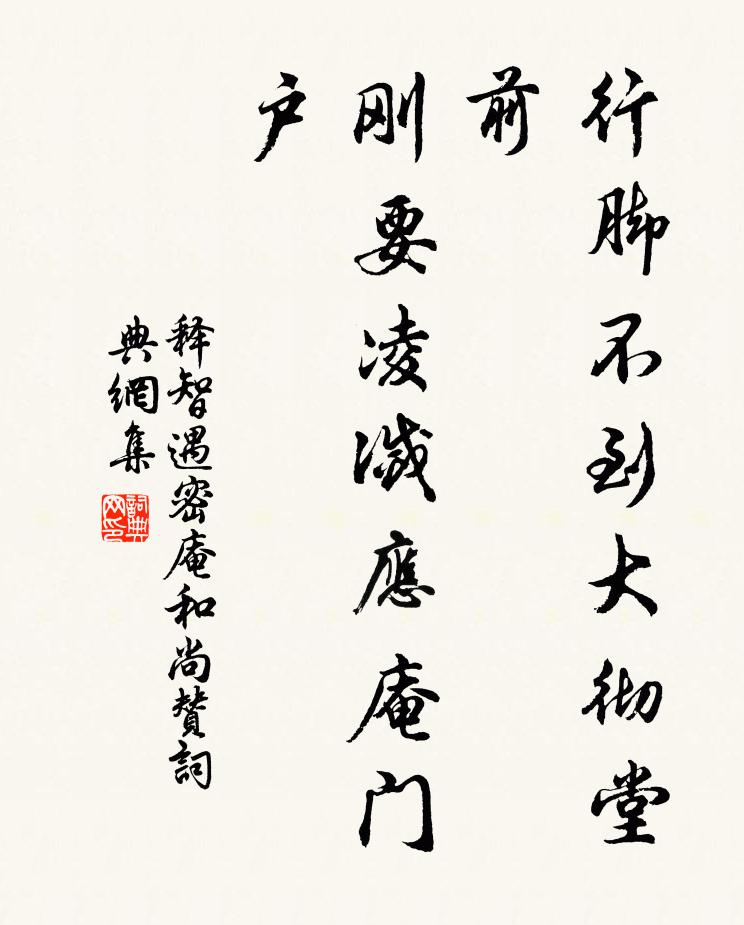 行脚不到大彻堂
前
刚要凌滅應庵门
户
释智遇密庵和尚賛詞
典網集
詞典
网印